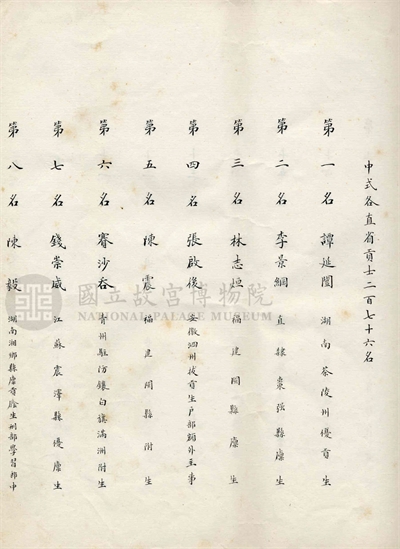 中式各直省貢士二百七十六名
第一名 譚延闓 湖南茶陵州優貢生
第二名 李景綱 直隸棗强縣廩生
第三名 林志烜 福建閩縣廩生
第四名 張啟後 安徽泗州拔貢生戶部額外主事
第五名 陳震 福建閩縣附生
第六名 賽沙敦 青州駐防鑲白旗滿洲附生
第七名 錢崇威 江蘇震澤縣優廩生
第八名 陳毅 湖南湘鄉縣廩貢生刑部學習郎中
國立故宮博物院
NATIONAL PALACE MUSEUM